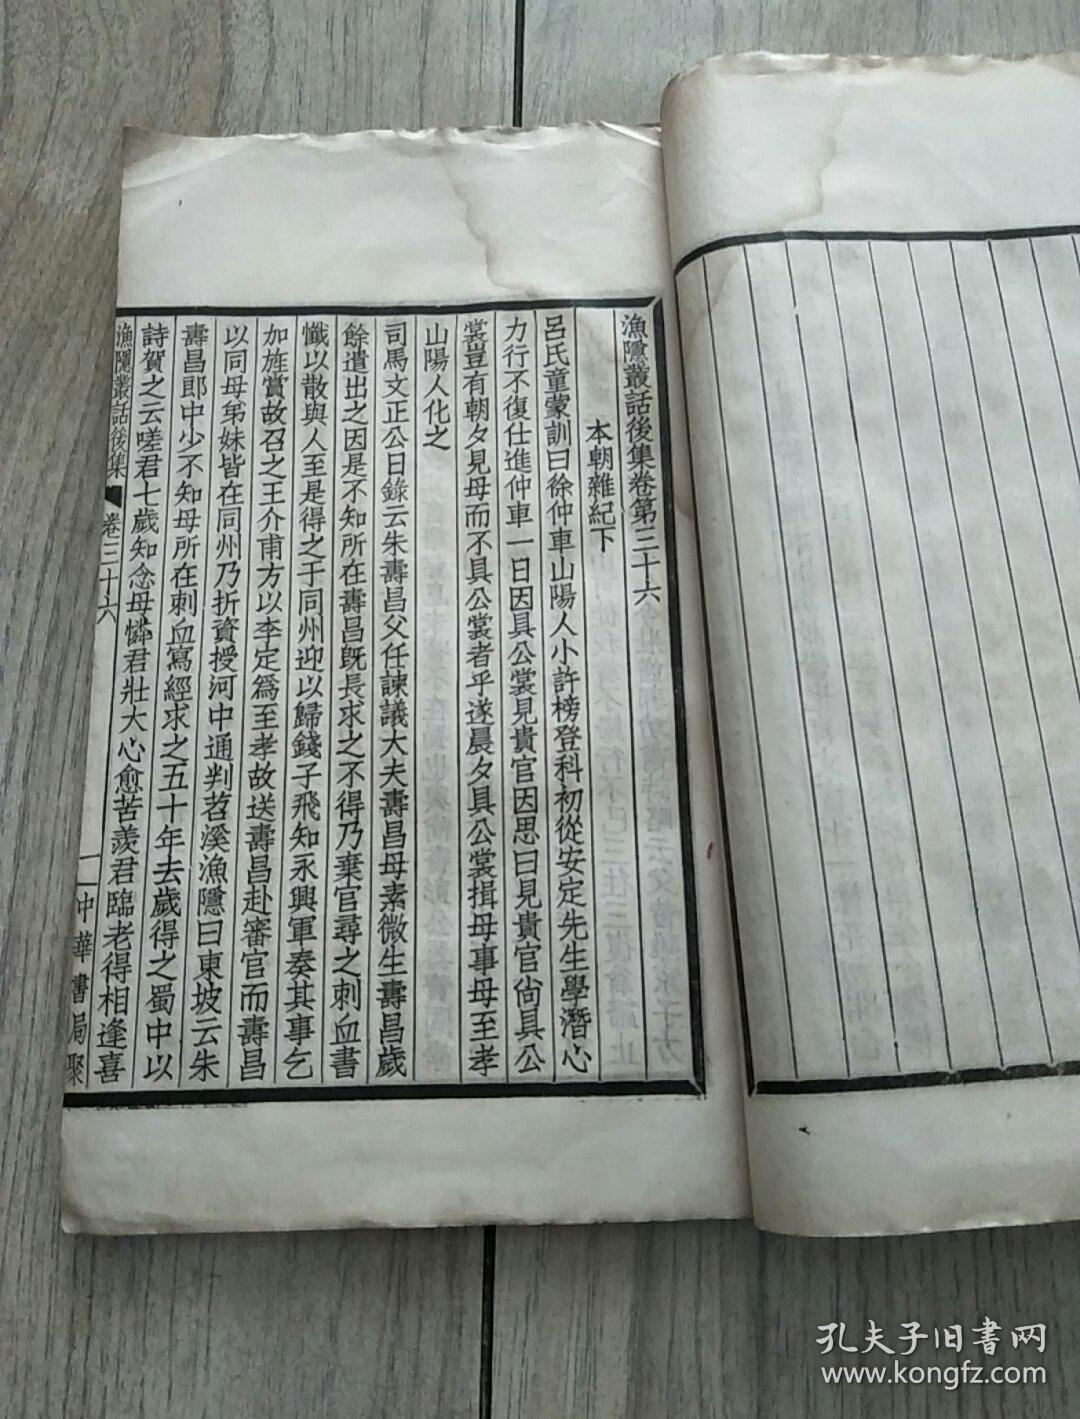 漁隱叢話後集卷第三十六
本朝雜紀下
呂氏童蒙訓曰徐仲車山陽人小許榜登科初從安定先生學潛心
力行不復仕進仲車一日因具公裳見貴官因思曰見貴官尙具公
裳豈有朝夕見母而不具公裳者乎遂晨夕具公裳揖母事母至孝
山陽人化之
司馬文正公日錄云朱壽昌父任諫議大夫壽昌母素微生壽昌歲
餘遣出之因是不知所在壽昌旣長求之不得乃棄官尋之刺血書
懺以散與人至是得之于同州迎以歸錢子飛知永興軍奏其事乞
加旌賞故召之王介甫方以李定爲至孝故送壽昌赴審官而壽昌
以同母弟妹皆在同州乃折資授河中通判苕溪漁隱曰東坡云朱
壽昌郎中少不知母所在刺血寫經求之五十年去歲得之蜀中以
詩賀之云嗟君七歲知念母憐君壯大心愈苦羨君臨老得相逢喜
漁隱叢話後集 卷三十六 一 中華書局聚
孔夫子旧書网
www.kongfz.com